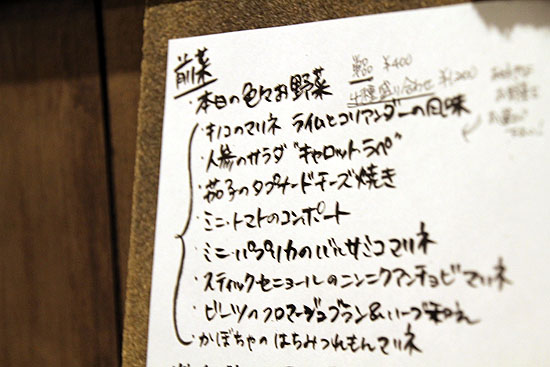 前菜
・本日の色々お野菜 単品 ¥400
4種盛り合わせ ¥1200
・キノコのマリネ ライムとコリアンダーの風味
・人参のサラダ"キャロットラペ"
・茄子のタプナードチーズ焼き
・ミニ・トマトのコンポート
・ミニ・パプリカのバルサミコマリネ
・スティックセニョールのニンニクアンチョビマリネ
・ビーツのフロマージュブラン&ハーブ和え
・かぼちゃのはちみつれもんマリネ